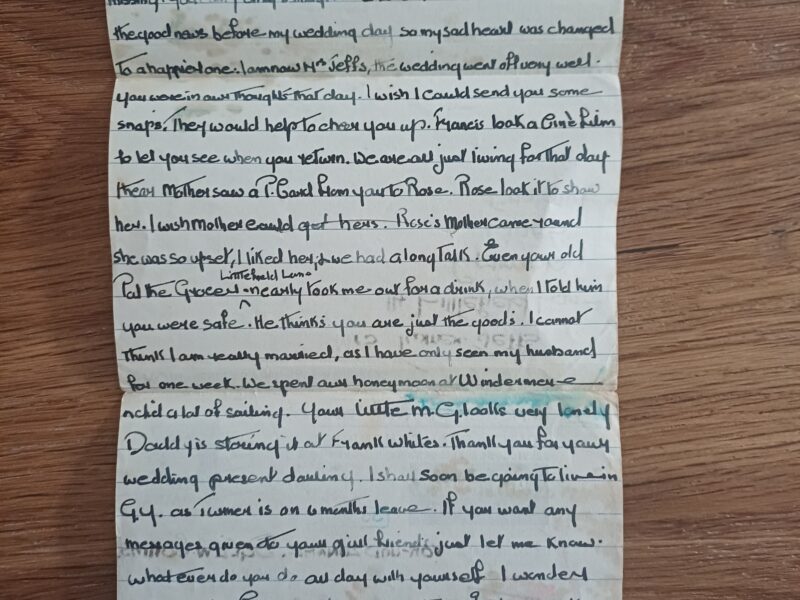 the good news before my wedding day so my sad heart was changed
To a happier one. I am now Mrs Jeffs, the wedding went off very well.
you were in our thoughts that day. I wish I could send you some
snaps. They would help to cheer you up. Francis took a Cine film
to let you see when you return. We are all just living for that day
Mother saw a P. Card from you to Rose. Rose took it to show
her. I wish Mother could get hers. Rose's Mother came round
she was so upset, I liked her, & we had a long Talk. Even your old
Pal the Grocer Littlefield Lane nearly took me out for a drink, when I told him
you were safe. He thinks you are just the goods. I cannot
think I am really married, as I have only seen my husband
for one week. We spent our honeymoon at Windermere
and did a lot of sailing. Your little M.G. looks very lonely
Daddy is storing it at Frank Whites. Thank you for your
wedding present darling. I shall soon be going to live in
G.Y. as is on 6 months leave. If you want any
messages given to your girl friends just let me know.
what ever do you do all day with yourself I wonder